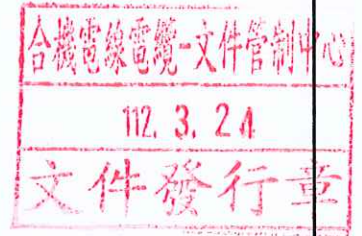 合機電線電纜-文件管制中心
112. 3. 24
文件發行章